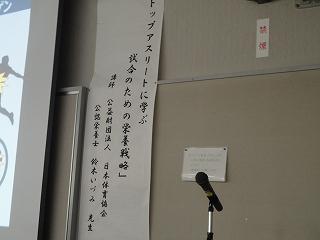 トップアスリートに学ぶ
試合のための栄養戦略」
講師 公益財団法人 日本体育協会
公認栄養士 鈴木いづみ 先生
禁煙